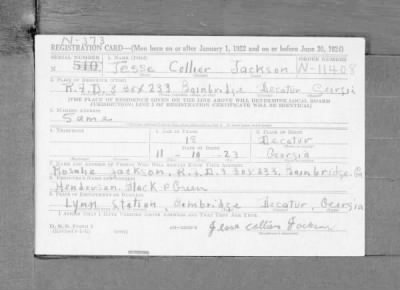 N-373
REGISTRATION CARD—(Men born on or after January 1, 1922 and on or before June 30, 1924)
SERIAL NUMBER 1. NAME (Print) ORDER NUMBER
N 510 Jesse Collier Jackson N-11408
2. PLACE OF RESIDENCE (Print)
R.F.D. 3 Box 233 Bainbridge Decatur Georgia
[THE PLACE OF RESIDENCE GIVEN ON THE LINE ABOVE WILL DETERMINE LOCAL BOARD
JURISDICTION; LINE 2 OF REGISTRATION CERTIFICATE WILL BE IDENTICAL]
3. MAILING ADDRESS
Same
4. TELEPHONE 5. AGE IN YEARS 6. PLACE OF BIRTH
18 Decatur
DATE OF BIRTH
11 - 10 - 23 Georgia
7. NAME AND ADDRESS OF PERSON WHO WILL ALWAYS KNOW YOUR ADDRESS
Jackson, R.F.D. 3 Box 233, Bainbridge, Ga
8. EMPLOYER'S NAME AND ADDRESS
Henderson, Black & Green
9. PLACE OF EMPLOYMENT OR BUSINESS
Lynn Station, Bainbridge Decatur, Georgia
I AFFIRM THAT I HAVE VERIFIED ABOVE ANSWERS AND THAT THEY ARE TRUE
D. S. S. Form 1
Jesse Collier Jackson